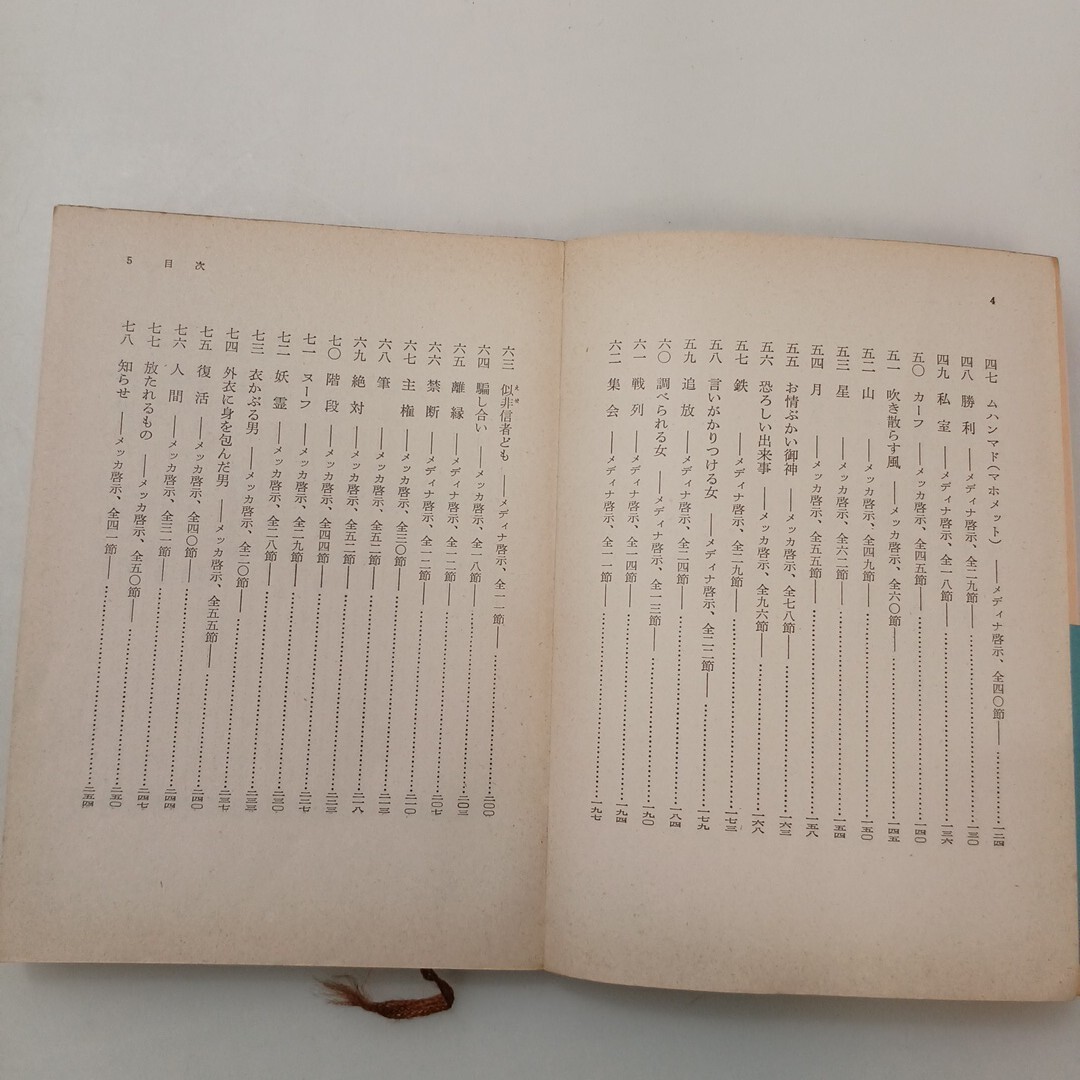 4
四七 ムハンマド(マホメット) ——メディナ啓示、全四〇節——……………一二四
四八 勝利 ——メディナ啓示、全二九節——……………一三〇
四九 私室 ——メディナ啓示、全一八節——……………一三六
五〇 カーフ ——メッカ啓示、全四五節——……………一四〇
五一 吹き散らす風 ——メッカ啓示、全六〇節——……………一四五
五二 山 ——メッカ啓示、全四九節——……………一五〇
五三 星 ——メッカ啓示、全六二節——……………一五四
五四 月 ——メッカ啓示、全五五節——……………一五八
五五 お情ぶかい御神 ——メッカ啓示、全七八節——……………一六三
五六 恐ろしい出来事 ——メッカ啓示、全九六節——……………一六八
五七 鉄 ——メディナ啓示、全二九節——……………一七三
五八 言いがかりつける女 ——メディナ啓示、全二二節——……………一七九
五九 追放 ——メディナ啓示、全二四節——……………一八四
六〇 調べられる女 ——メディナ啓示、全一三節——……………一九〇
六一 戦列 ——メディナ啓示、全一四節——……………一九四
六二 集会 ——メディナ啓示、全一一節——……………一九七
5 目次
六三 似非信者ども ——メディナ啓示、全一一節——……………二〇〇
六四 騙し合い ——メッカ啓示、全一八節——……………二〇三
六五 離縁 ——メディナ啓示、全一二節——……………二〇七
六六 禁断 ——メディナ啓示、全一二節——……………二一〇
六七 主権 ——メッカ啓示、全三〇節——……………二一三
六八 筆 ——メッカ啓示、全五二節——……………二一八
六九 絶対 ——メッカ啓示、全五二節——……………二二三
七〇 階段 ——メッカ啓示、全四四節——……………二二七
七一 ヌーフ ——メッカ啓示、全二九節——……………二三〇
七二 妖霊 ——メッカ啓示、全二八節——……………二三三
七三 衣かぶる男 ——メッカ啓示、全二〇節——……………二三七
七四 外衣に身を包んだ男 ——メッカ啓示、全五五節——……………二四〇
七五 復活 ——メッカ啓示、全四〇節——……………二四四
七六 人間 ——メッカ啓示、全三一節——……………二四七
七七 放たれるもの ——メッカ啓示、全五〇節——……………二五〇
七八 知らせ ——メッカ啓示、全四一節——……………二五四